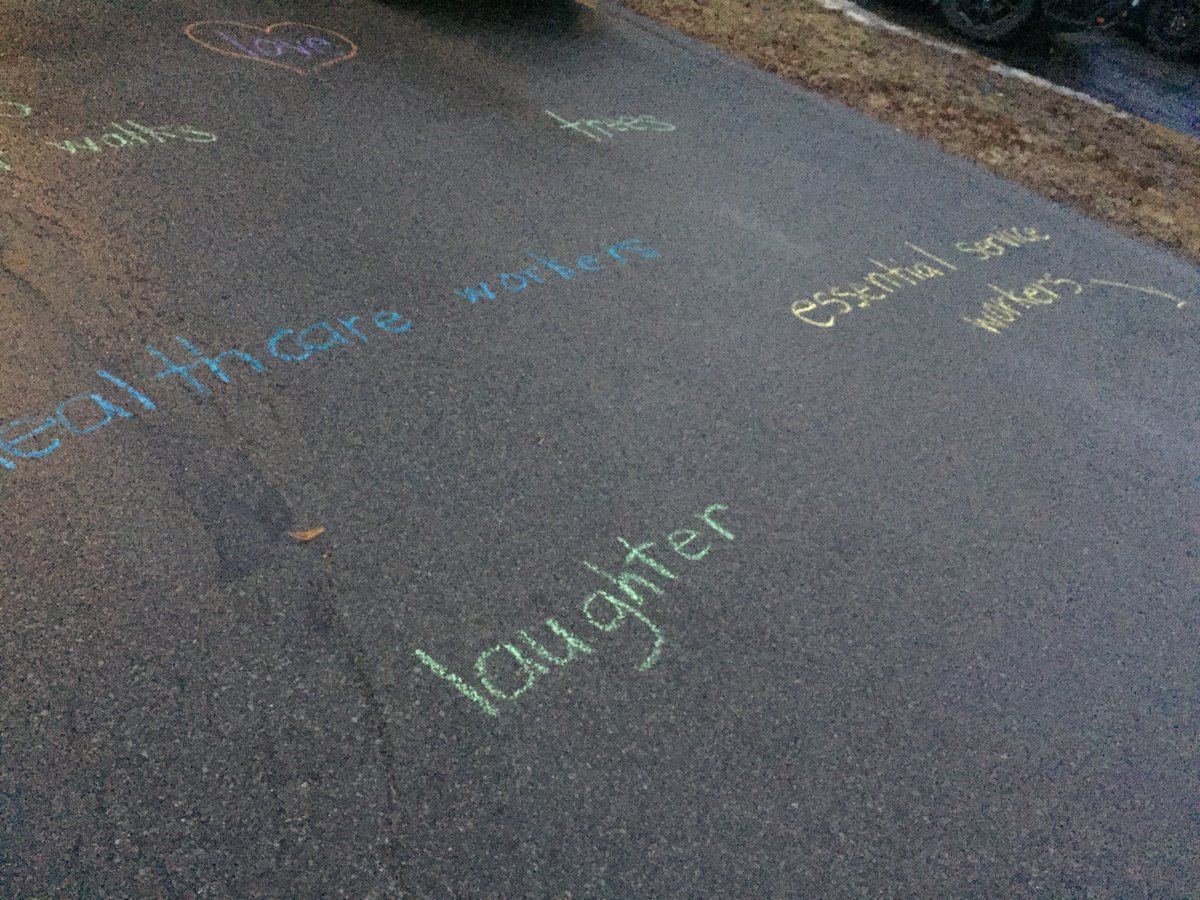 love
walks
trees
essential service
workers
healthcare workers
laughter